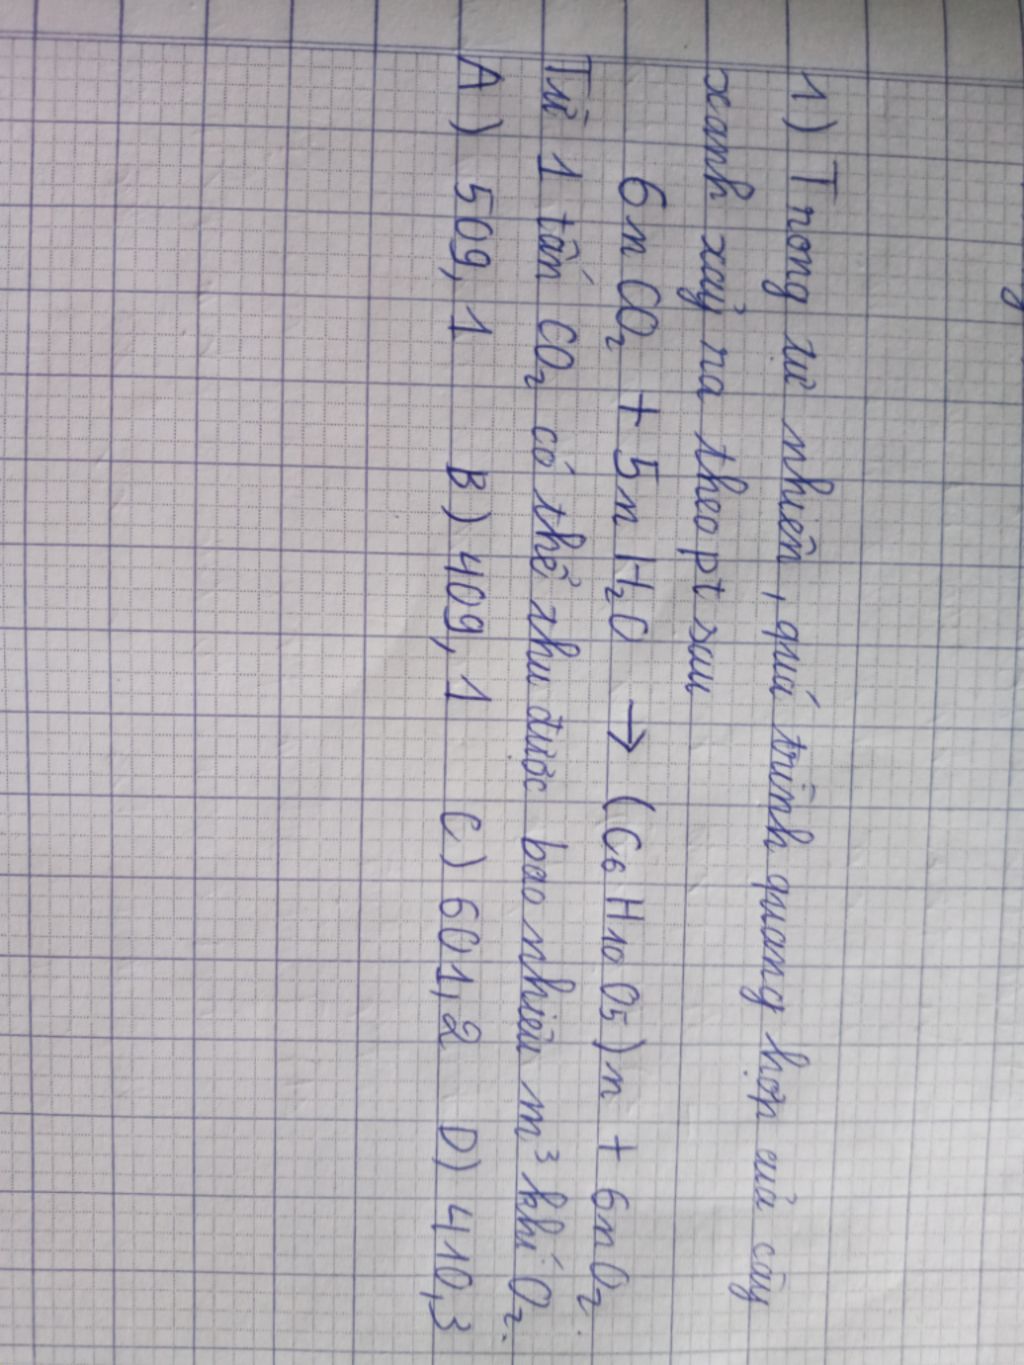 1) Trong tự nhiên, quá trình quang hợp của cây
xanh xảy ra theo pt sau
6n CO₂ + 5n H₂O → (C₆H₁₀O₅)n + 6nO₂.
Từ 1 tấn CO₂ có thể thu được bao nhiêu m³ khí O₂.
A) 509,1 B) 409,1 C) 601,2 D) 410,3